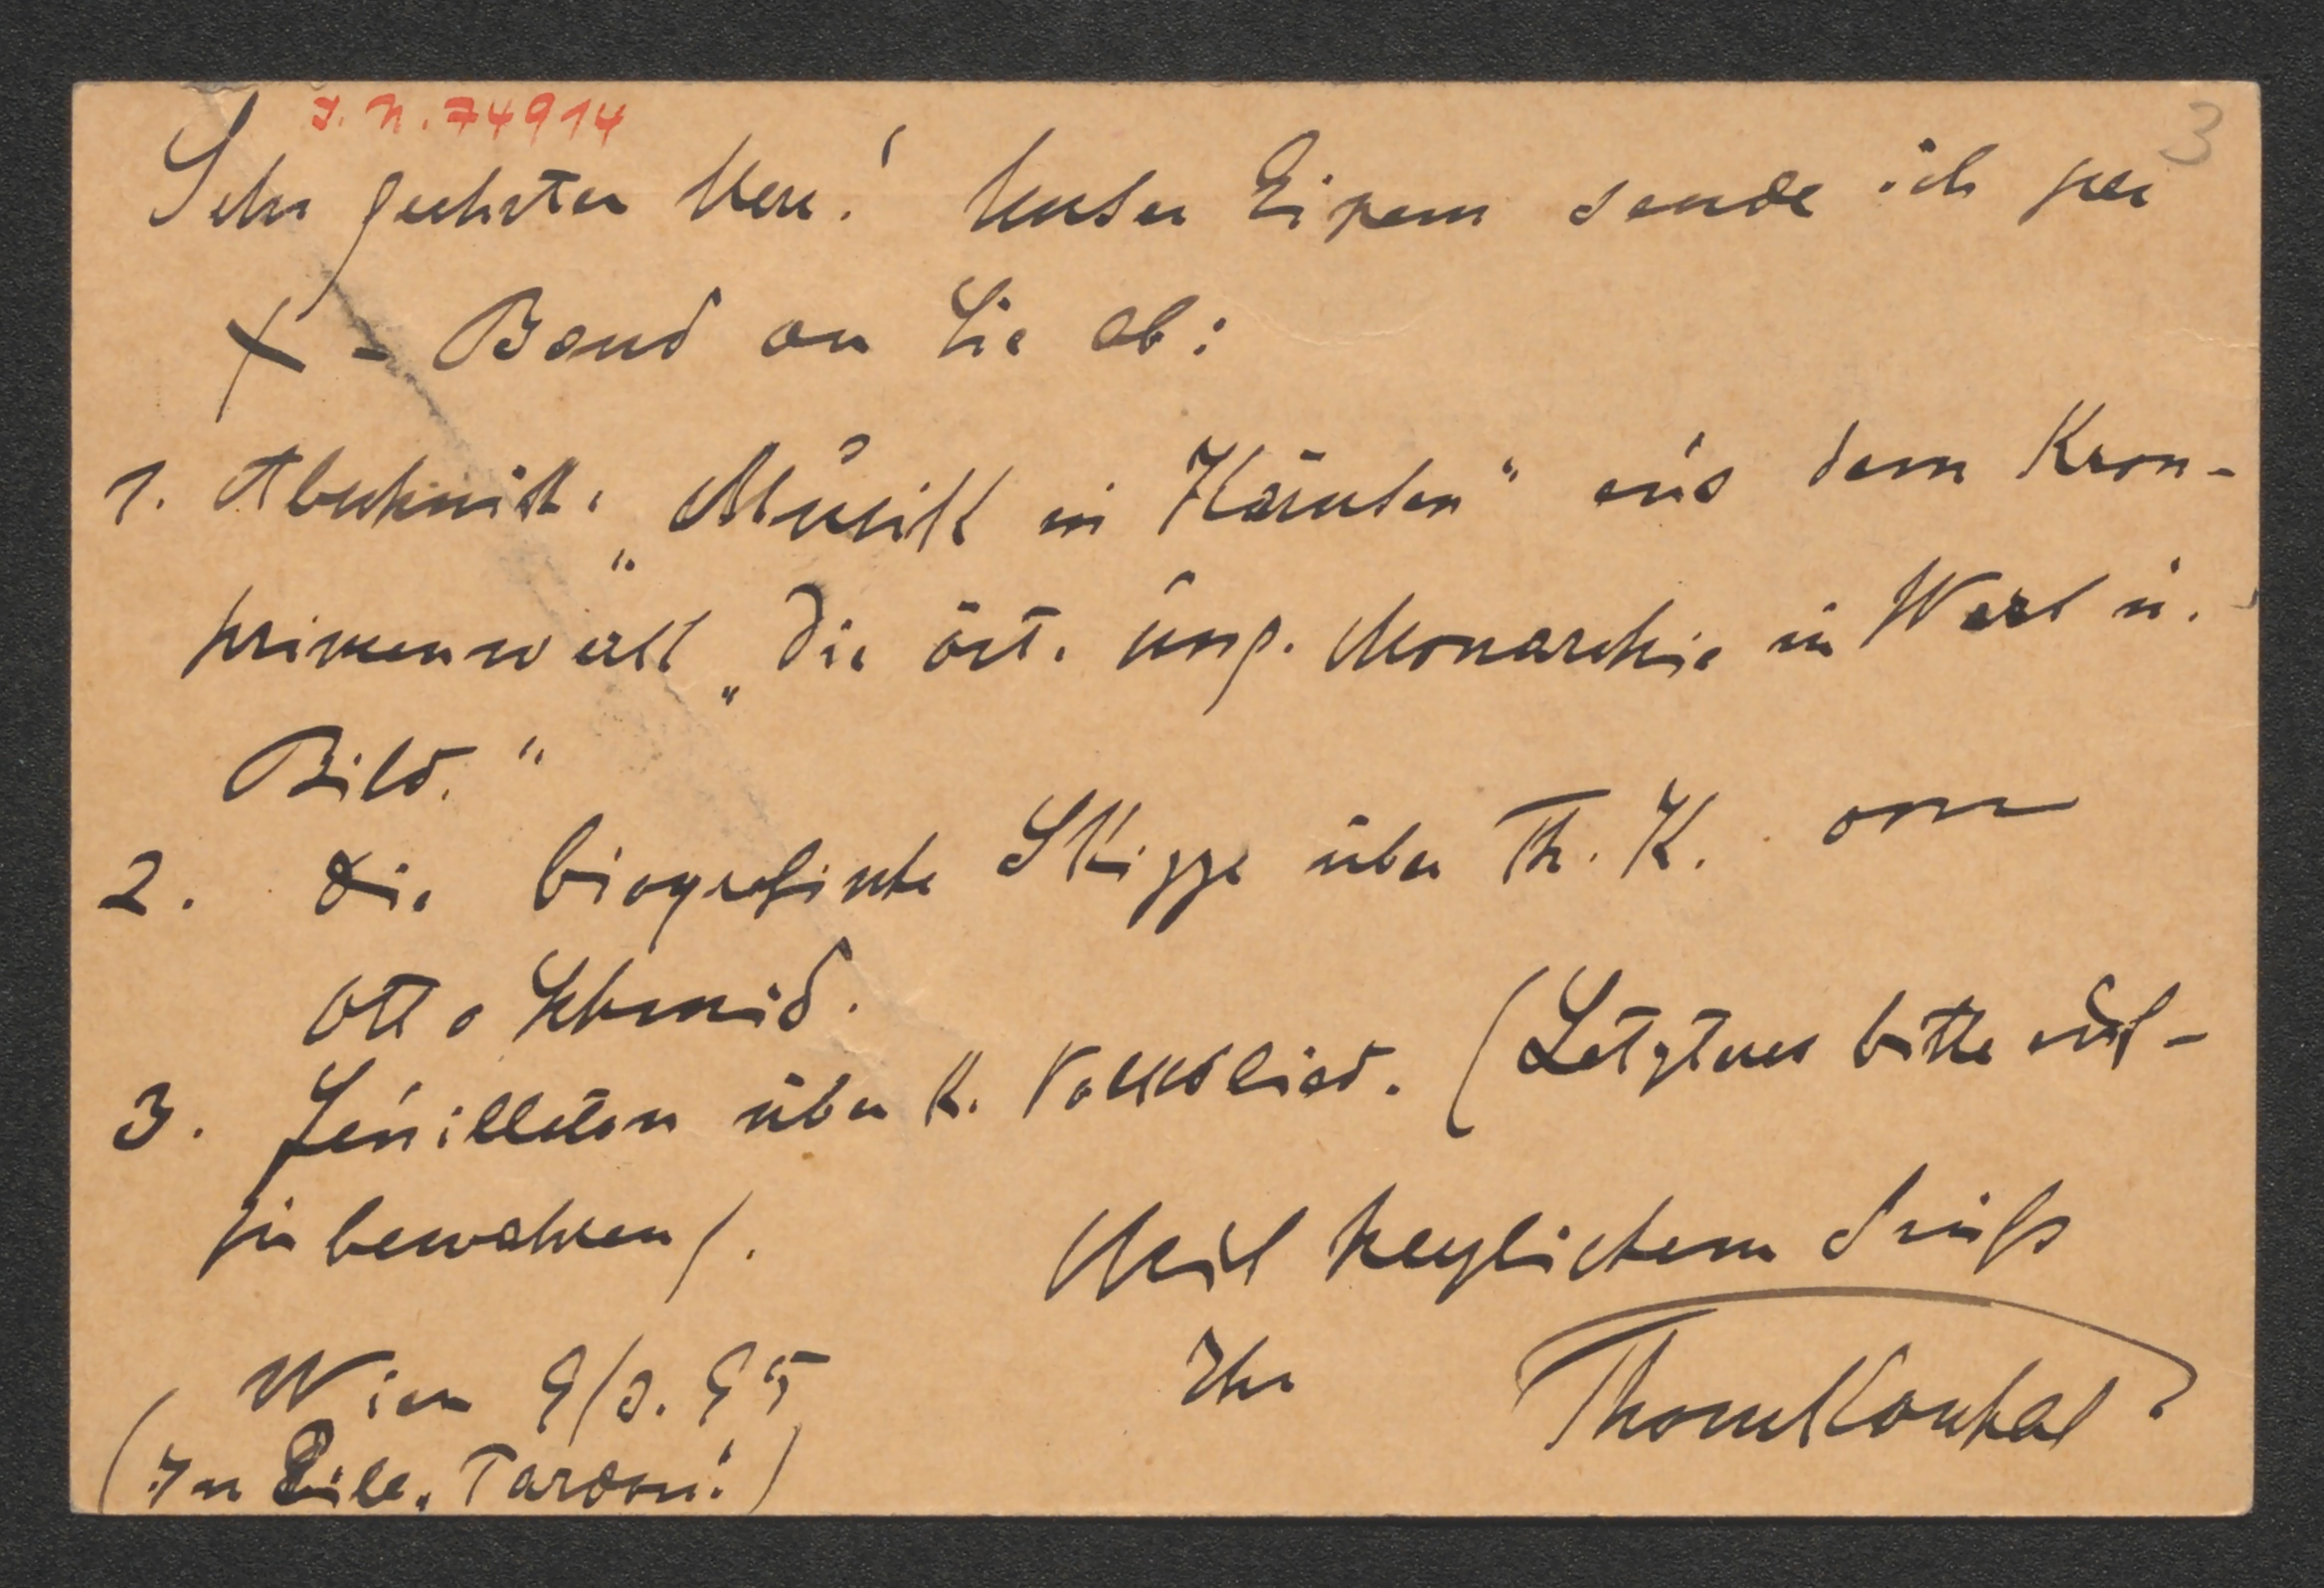 I. N. 74914
3
Sehr geehrter Herr! Unter Einem sende ich per
X-Band an Sie ab:
1. Abschnitt: „Musik in Kärnten“ aus dem Kron-
prinzenwerk „Die öst. ung. Monarchie in Wort u.
Bild.“
2. Die biografische Skizze über Th. K. von
Otto Schmid.
3. Feuilleton über K. Volkslied. (Letzteres bitte auf-
zubewahren).
Mit herzlichem Gruß
Wien 9/3. 95
Ihr ThomKoschat
(In Eile. Pardon!)